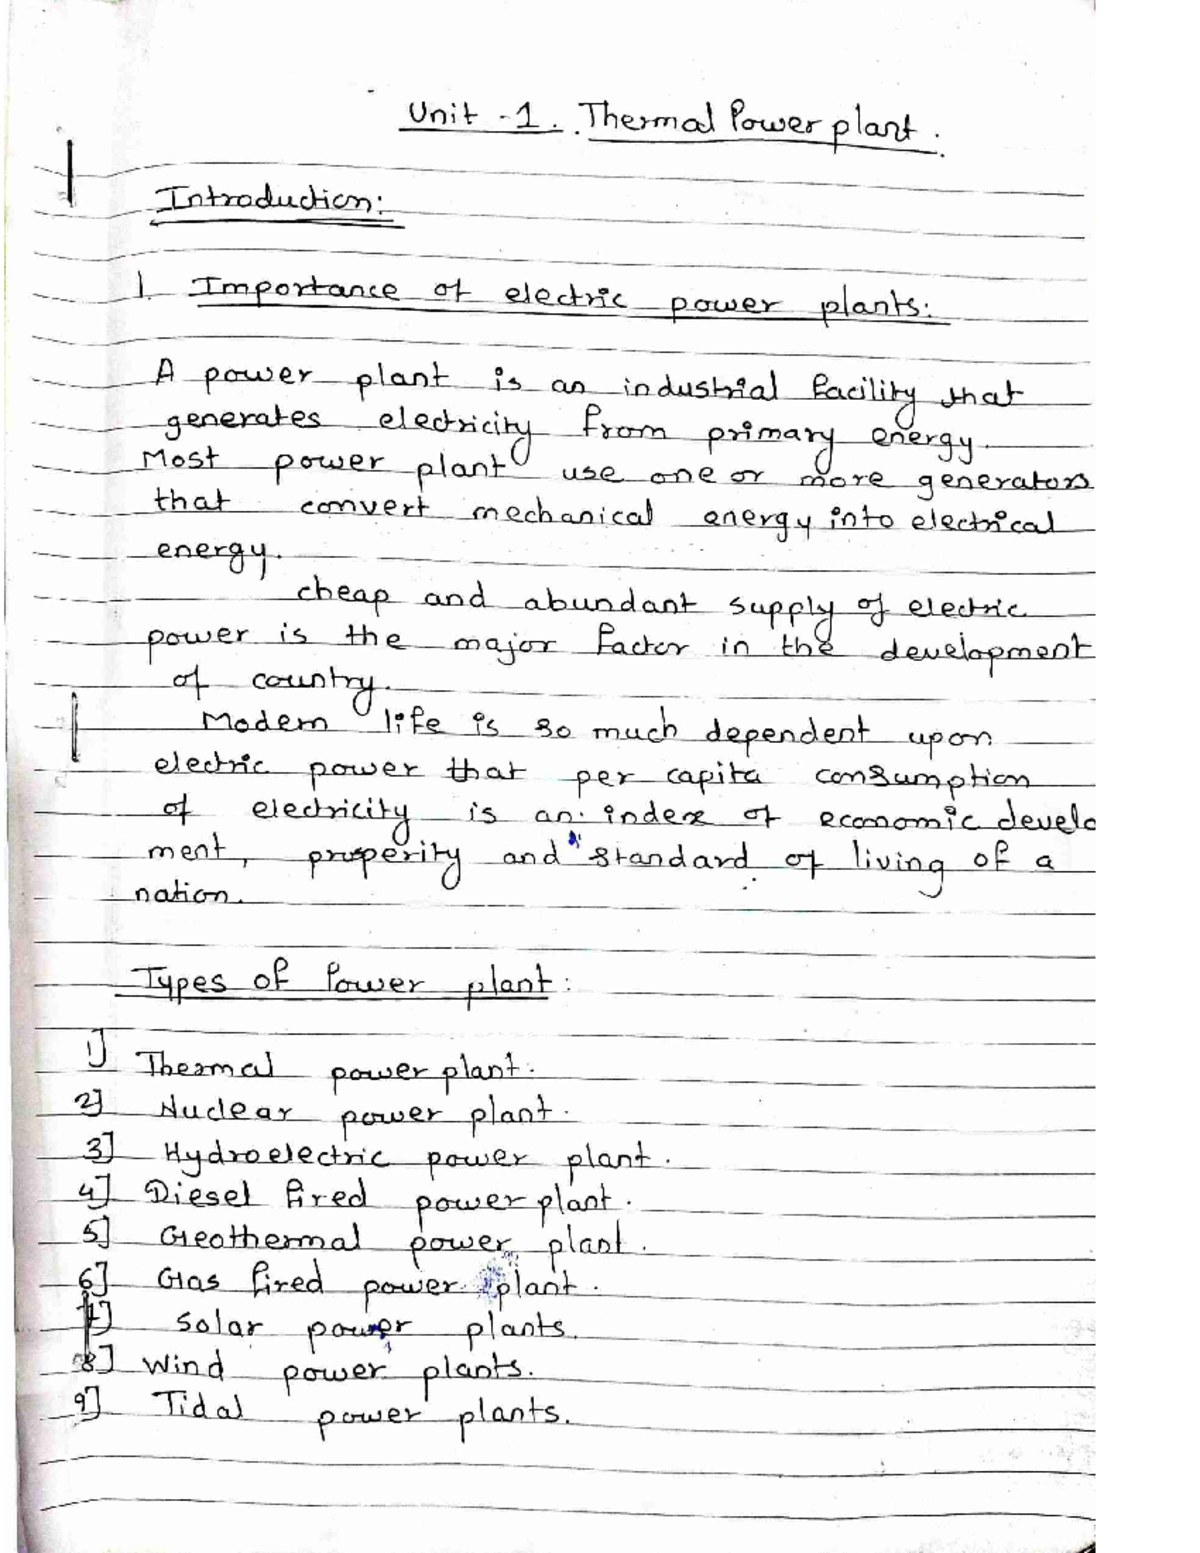 Unit - 1. Thermal Power plant.
Introduction:
1. Importance of electric power plants:
A power plant is an industrial facility that
generates electricity from primary energy.
Most power plant use one or more generators
that convert mechanical energy into electrical
energy.
cheap and abundant supply of electric
power is the major factor in the development
of country.
Modern life is so much dependent upon
electric power that per capita consumption
of electricity is an index of economic develo
ment, prosperity and standard of living of a
nation.
Types of Power plant:
1] Thermal power plant.
2] Nuclear power plant.
3] Hydroelectric power plant.
4] Diesel fired power plant.
5] Geothermal power plant.
6] Gas fired power plant.
7] Solar power plants.
8] Wind power plants.
9] Tidal power plants.